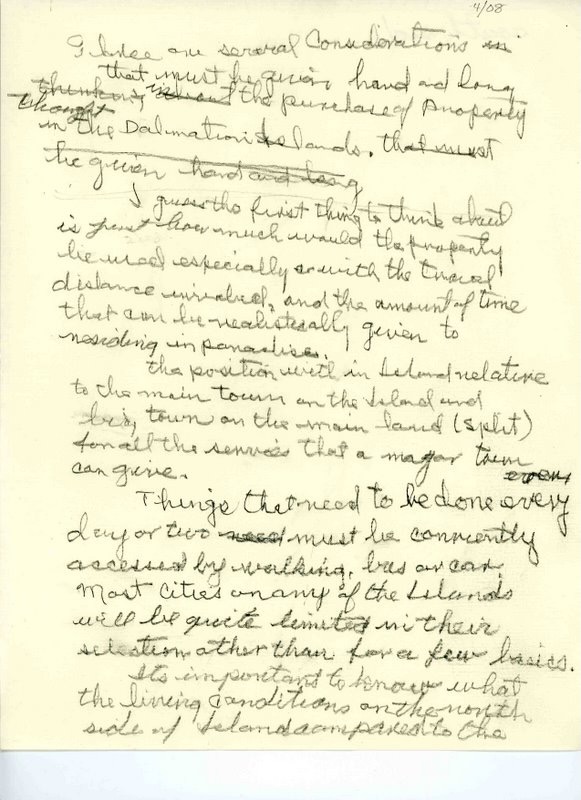 4/08
There are several Considerations in
that must be given hard and long
thinking about the purchase of Property
thought
in the Dalmation Islands. that must
be given hard and long
I guess the first thing to think about
is just how much would the property
be used especially with the travel
distance involved, and the amount of time
that can be realistically given to
residing in paradise.
the position with in Island relative
to the main town on the Island and
big town on the main land (Split)
for all the services that a magor town
can give. every
Things that need to be done every
day or two need must be conviently
accessed by walking, bus or car.
Most Cities on any of the Islands
will be quite limited in their
selection other than for a few basics.
Its important to know what
the living conditions on the north
side of Island compared to the